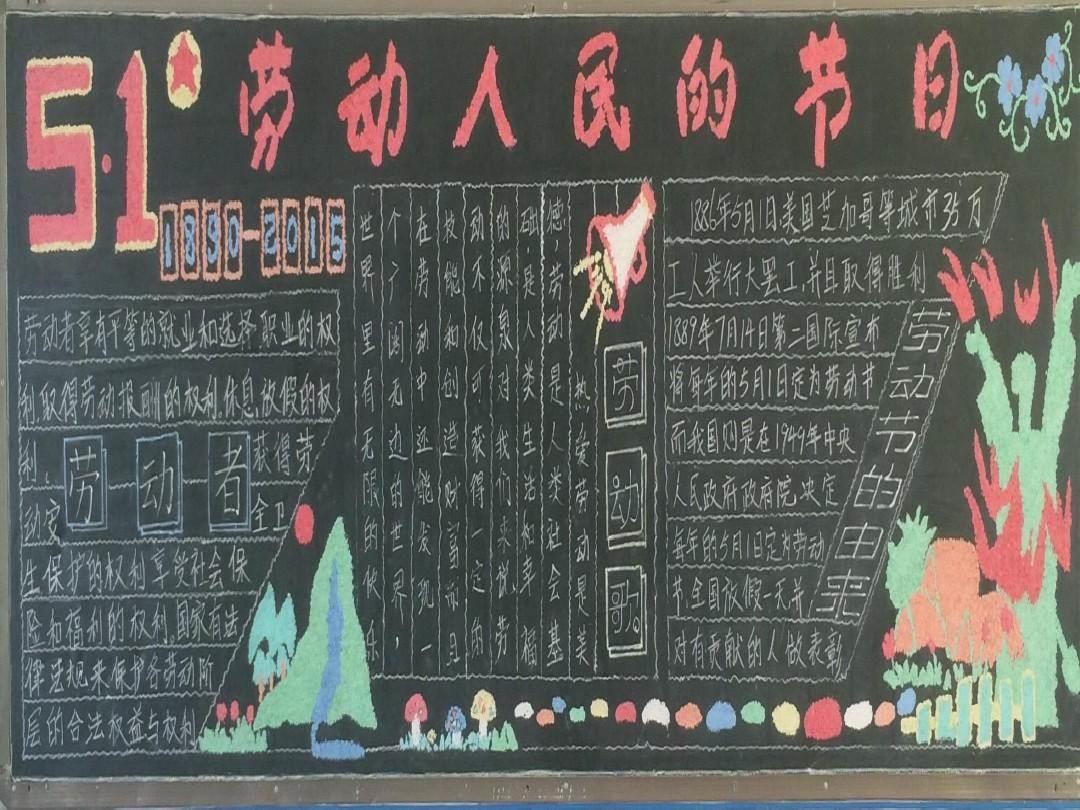 5·1 劳动人民的节日
1890-2015
劳动者享有平等的就业和选择职业的权
利取得劳动报酬的权利休息放假的权
利,获得劳
劳动者
动安全卫
生保护的权利享受社会保
险和福利的权利,国家有法
律法规来保护各劳动阶
层的合法权益与权利
劳动歌。
热爱劳动是美
德,劳动是人类社会基
础,是人类生活和幸福
的源泉对我们来说,劳
动不仅可获得一定的
技能和创造财富而且
在劳动中还能发现一
个广阔无边的世界,
世界里有无限的快乐
劳动节的由来
1886年5月1日美国芝加哥等城市35万
工人举行大罢工,并且取得胜利
1889年7月14日第二国际宣布
将每年的5月1日定为劳动节
而我国则是在1949年中央
人民政府政府院决定
每年的5月1日定为劳动
节,全国放假一天并
对有贡献的人做表彰